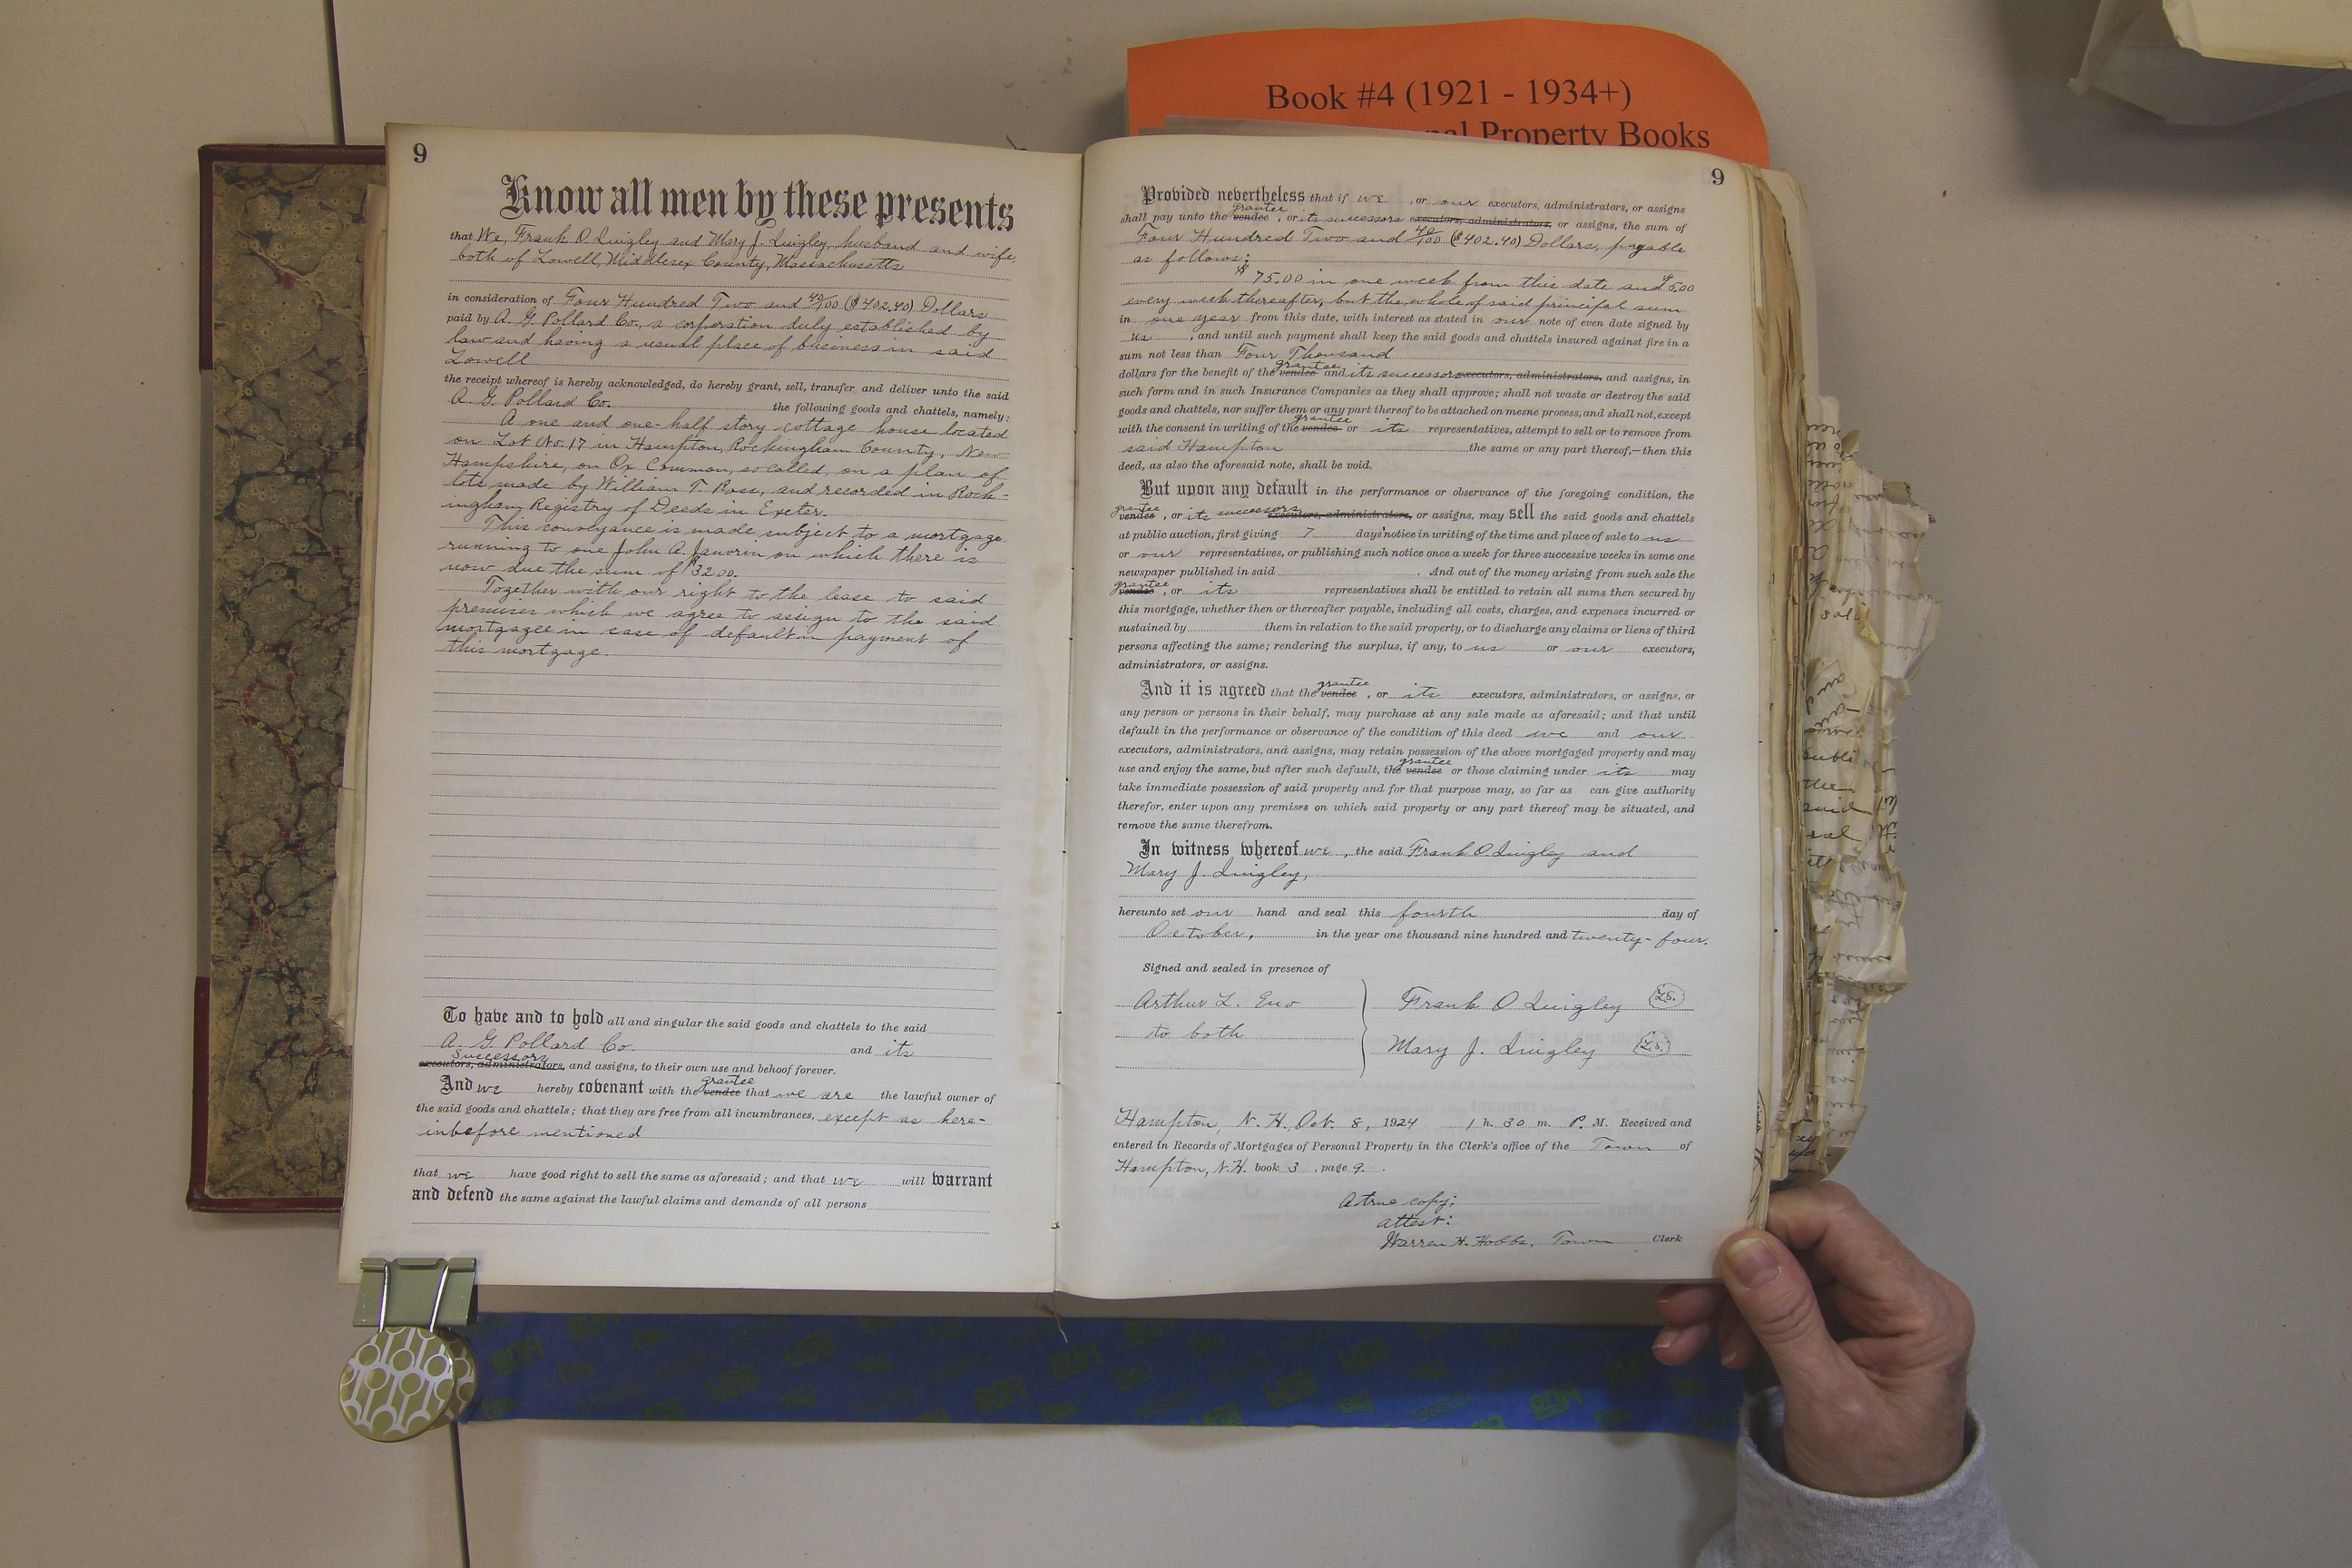 Book #4 (1921 - 1934+)
Property Books
9
Know all men by these presents
that We, Frank O Quigley and Mary J. Quigley, husband and wife,
both of Lowell, Middlesex County, Massachusetts
in consideration of Four Hundred Two and 40/100 ($402.40) Dollars
paid by A. G. Pollard Co., a corporation duly established by
law and having a usual place of business in said
Lowell
the receipt whereof is hereby acknowledged, do hereby grant, sell, transfer and deliver unto the said
A. G. Pollard Co. the following goods and chattels, namely:
A one and one-half story cottage house located
on Lot No. 17 in Hampton, Rockingham County, New
Hampshire, on Ox Common, so called, on a plan of
lots made by William T. Ross, and recorded in Rock-
ingham Registry of Deeds in Exeter.
This conveyance is made subject to a mortgage
running to one John A. Janvrin on which there is
now due the sum of $3200.
Together with our right to the lease to said
premises which we agree to assign to the said
mortgagee in case of default in payment of
this mortgage.
To have and to hold all and singular the said goods and chattels to the said
A. G. Pollard Co. and its
Successors
executors, administrators, and assigns, to their own use and behoof forever.
grantee
And we hereby covenant with the vendee that we are the lawful owner of
the said goods and chattels; that they are free from all incumbrances, except as here-
inbefore mentioned
that we have good right to sell the same as aforesaid; and that we will warrant
and defend the same against the lawful claims and demands of all persons
9
Provided nevertheless that if we , or our executors, administrators, or assigns
grantee
shall pay unto the vendee , or its successors executors, administrators, or assigns, the sum of
Four Hundred Two and 40/100 ($402.40) Dollars, payable
as follows:
$75.00 in one week from this date and $5.00
every week thereafter, but the whole of said principal sum
in one year from this date, with interest as stated in our note of even date signed by
us , and until such payment shall keep the said goods and chattels insured against fire in a
sum not less than Four Thousand
grantee
dollars for the benefit of the vendee and its successors executors, administrators, and assigns, in
such form and in such Insurance Companies as they shall approve; shall not waste or destroy the said
goods and chattels, nor suffer them or any part thereof to be attached on mesne process, and shall not, except
grantee
with the consent in writing of the vendee or its representatives, attempt to sell or to remove from
said Hampton the same or any part thereof,—then this
deed, as also the aforesaid note, shall be void.
But upon any default in the performance or observance of the foregoing condition, the
grantee
vendee , or its successors executors, administrators, or assigns, may sell the said goods and chattels
at public auction, first giving 7 days' notice in writing of the time and place of sale to us
or our representatives, or publishing such notice once a week for three successive weeks in some one
newspaper published in said . And out of the money arising from such sale the
grantee
vendee , or its representatives shall be entitled to retain all sums then secured by
this mortgage, whether then or thereafter payable, including all costs, charges, and expenses incurred or
sustained by them in relation to the said property, or to discharge any claims or liens of third
persons affecting the same; rendering the surplus, if any, to us or our executors,
administrators, or assigns.
grantee
And it is agreed that the vendee , or its executors, administrators, or assigns, or
any person or persons in their behalf, may purchase at any sale made as aforesaid; and that until
default in the performance or observance of the condition of this deed we and our
executors, administrators, and assigns, may retain possession of the above mortgaged property and may
grantee
use and enjoy the same, but after such default, the vendee or those claiming under its may
take immediate possession of said property and for that purpose may, so far as can give authority
therefor, enter upon any premises on which said property or any part thereof may be situated, and
remove the same therefrom.
In witness whereof we , the said Frank O. Quigley and
Mary J. Quigley,
hereunto set our hand and seal this fourth day of
October, in the year one thousand nine hundred and twenty-four.
Signed and sealed in presence of
Arthur L. Eno
to both
Frank O Quigley L.S.
Mary J. Quigley L.S.
Hampton, N. H., Oct. 8, 1924 1 h. 30 m. P. M. Received and
entered in Records of Mortgages of Personal Property in the Clerk's office of the Town of
Hampton, N.H. book 3 , page 9.
A true copy;
attest:
Warren H. Hobbs, Town Clerk